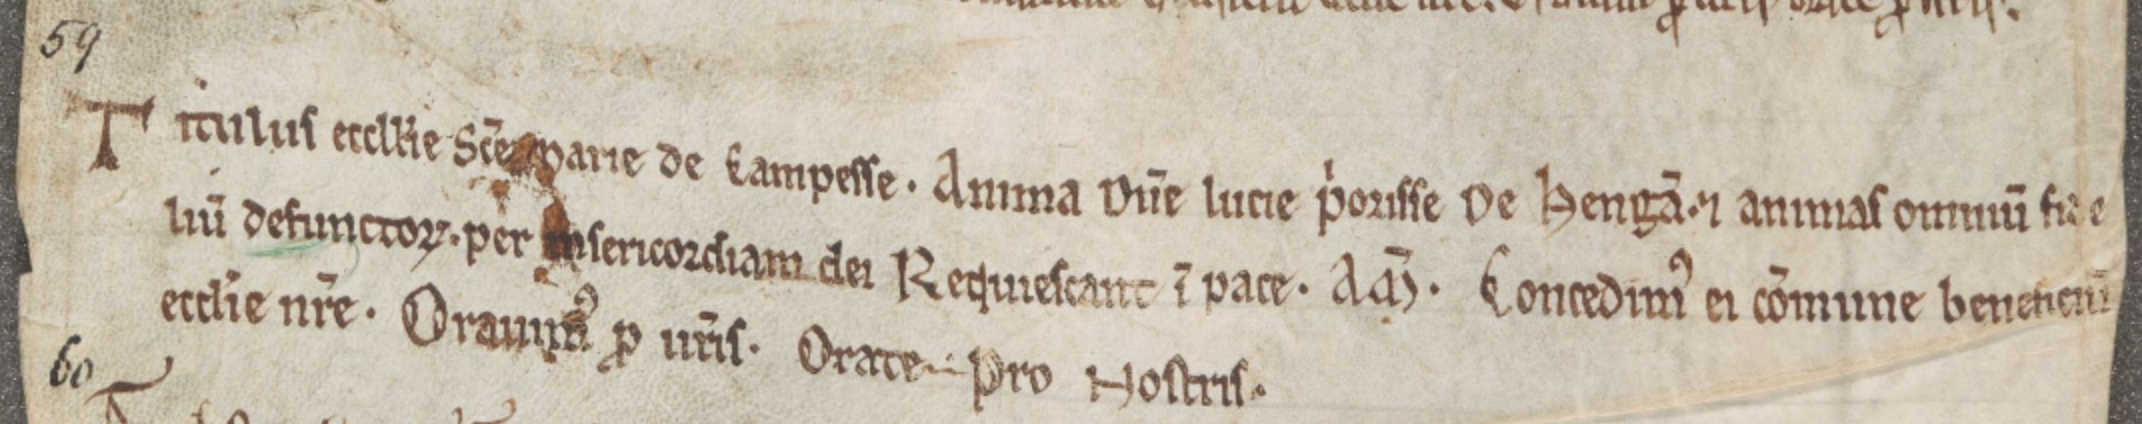 59
Titulus eccłłie Sc̄e Marie de Campesse. Anima Dn̄e lucie p̓orisse De Hengā. ⁊ animas omniū fide
liū defunctoꝝ. per misericordiam dei Requiescant ī pace. Am̄. Concedim᷒ ei cōmune beneficiū
eccłie nr̄e. Orauim᷒ ꝓ ur̄is. Orate pro Nostris.
60